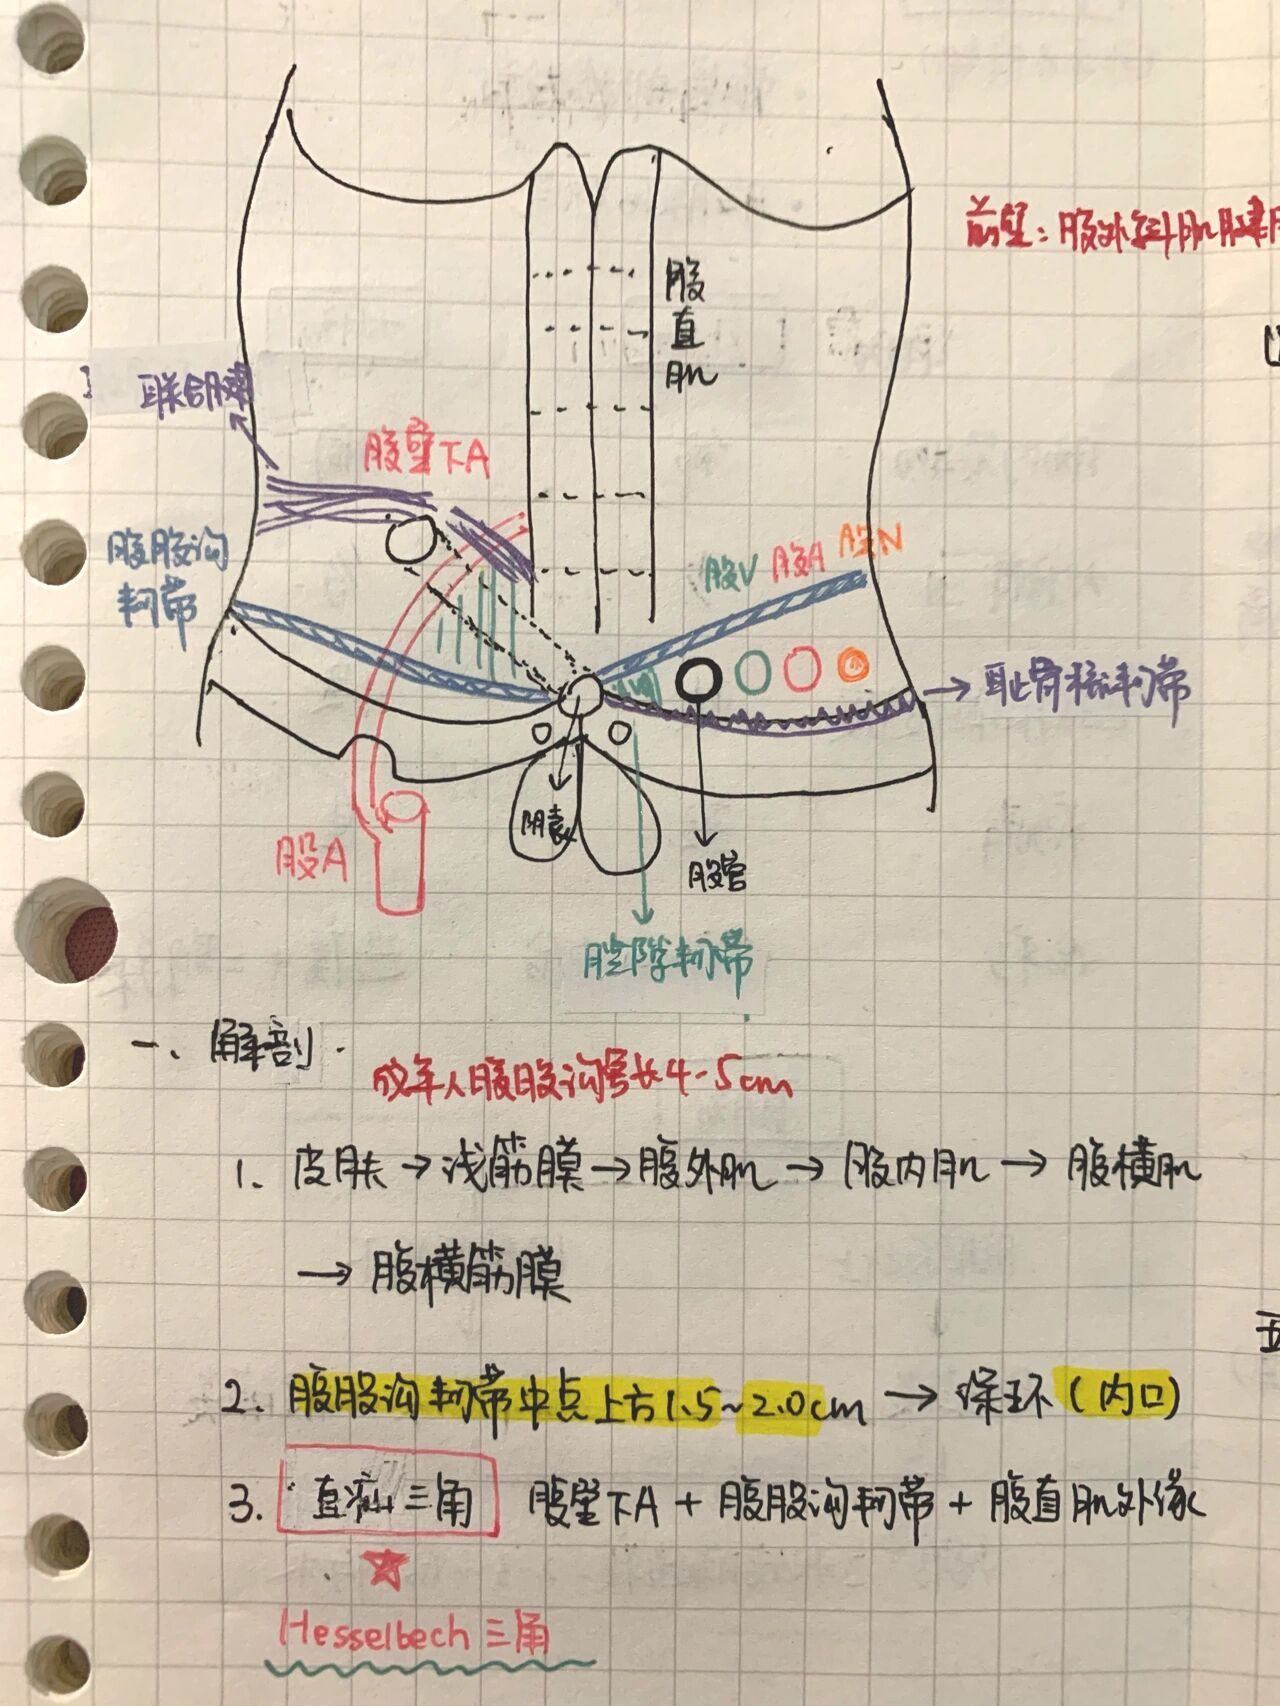 腹直肌
前壁：腹外斜肌腱
联合腱
腹壁下A
腹股沟
韧带
股V 股A 股N
耻骨梳韧带
股A
阴囊
股管
腔隙韧带
一、解剖.
成年人腹股沟管长4-5cm
1. 皮肤→浅筋膜→腹外肌→腹内肌→腹横肌
→腹横筋膜
2. 腹股沟韧带中点上方1.5~2.0cm→深环(内口)
3. 直疝三角 腹壁下A+腹股沟韧带+腹直肌外缘
Hesselbech三角
五